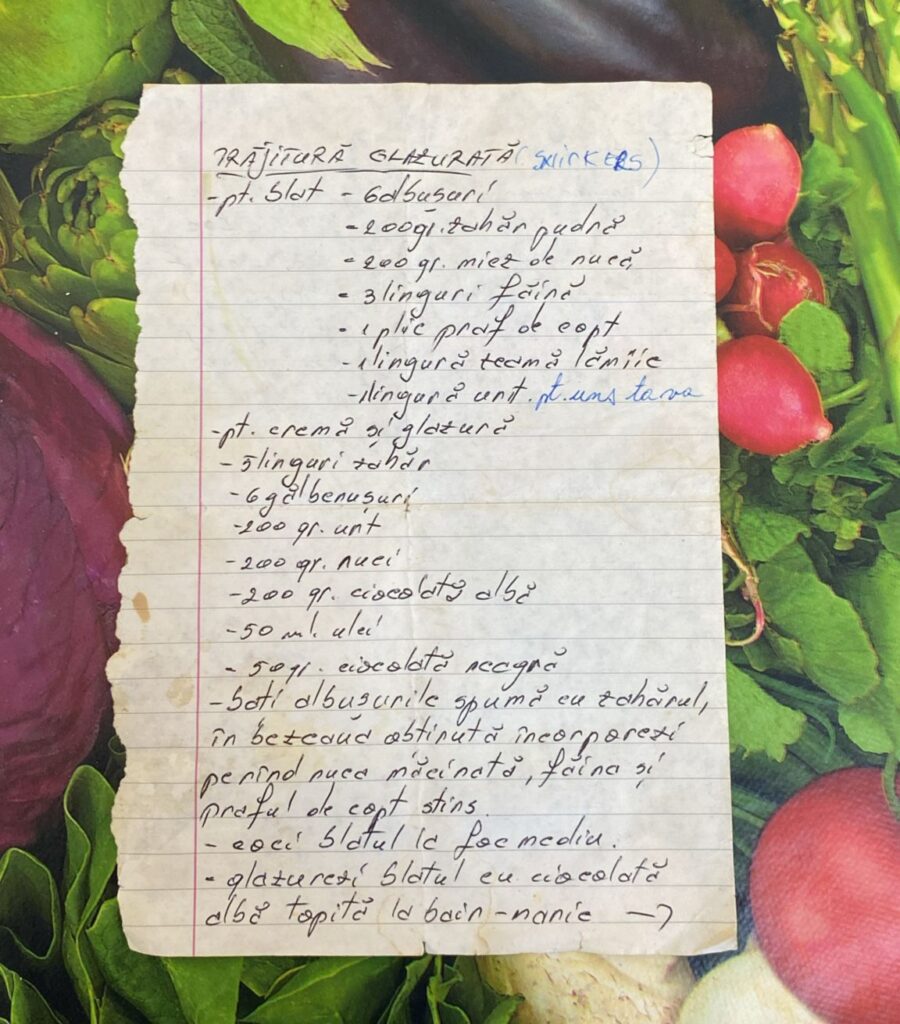 PRĂJITURĂ GLAZURATĂ (SNICKERS)
-pt. blat - 6 albusuri
- 200gr. zahăr pudră
- 200 gr. miez de nucă
- 3 linguri făină
- 1 plic praf de copt
- 1 lingură zeamă lămîie
- 1 lingură unt. pt. uns tava
-pt. cremă și glazură
- 5 linguri zahăr
- 6 gălbenușuri
- 200 gr. unt
- 200 gr. nuci
- 200 gr. ciocolată albă
- 50 ml. ulei
- 50 gr. ciocolată neagră
- bati albușurile spumă cu zahărul,
în bezeaua obtinută încorporezi
pe rînd nuca măcinată, făina și
praful de copt stins.
- coci blatul la foc mediu.
- glazurezi blatul cu ciocolată
albă topită la bain-marie →